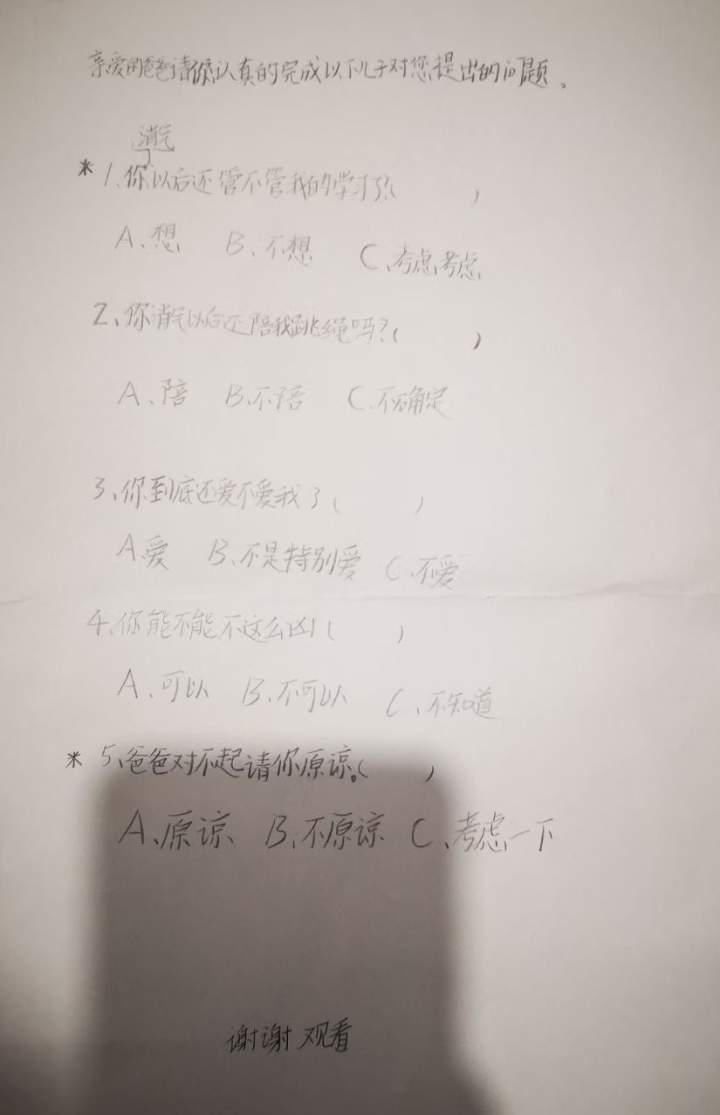 亲爱的爸爸请你认真的完成以下儿子对您提出的问题。
消气
* 1、你以后还管不管我的学习了?( )
A、想 B、不想 C、考虑考虑
2、你消气以后还陪我跳绳吗?( )
A、陪 B、不陪 C、不确定
3、你到底还爱不爱我了( )
A、爱 B、不是特别爱 C、不爱
4、你能不能不这么凶( )
A、可以 B、不可以 C、不知道
* 5、爸爸对不起请你原谅。( )
A、原谅 B、不原谅 C、考虑一下
谢谢观看